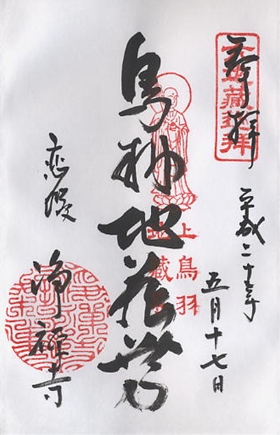 奉拝
平成二十年
五月十七日
鳥羽地蔵尊
上鳥羽
地蔵
恋塚
浄禅寺